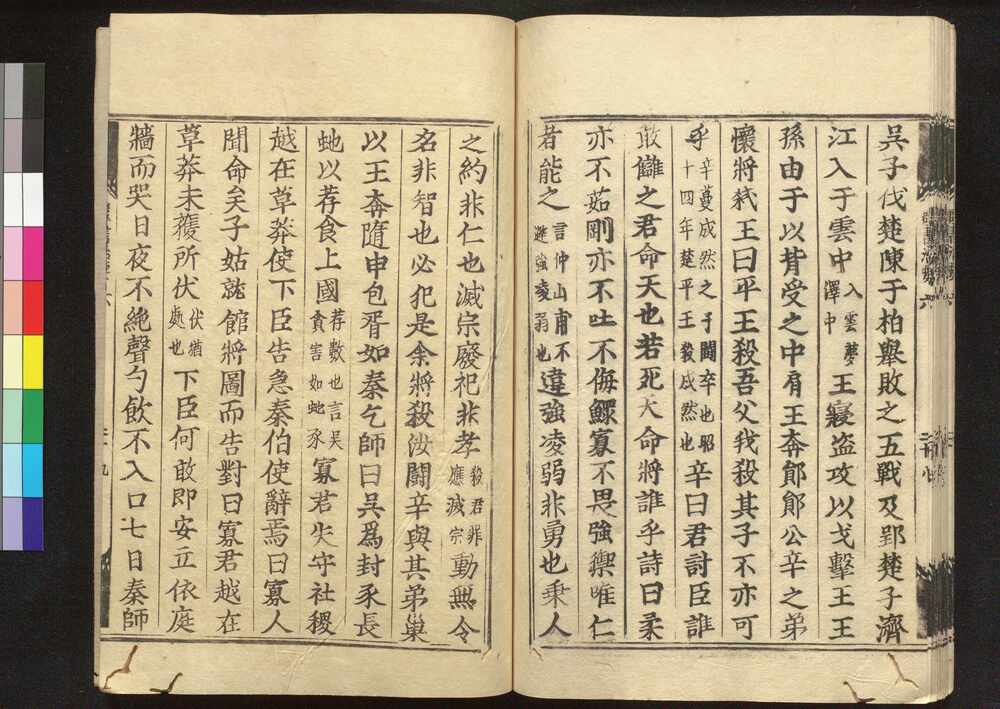 吳子伐楚陳于柏舉敗之五戰及郢楚子濟
江入于雲中入雲夢澤中王寢盜攻以戈擊王王
孫由于以背受之中肩王奔鄖鄖公辛之弟
懷將弒王曰平王殺吾父我殺其子不亦可
乎辛蔓成然之子闘卒也昭十四年楚平王殺成然也辛曰君討臣誰
敢讎之君命天也若死天命將誰乎詩曰柔
亦不茹剛亦不吐不侮鰥寡不畏強禦唯仁
者能之言仲山甫不避強凌弱也違強凌弱非勇也乘人
之約非仁也滅宗廢祀非孝殺君罪應滅宗動無令
名非智也必犯是余將殺汝闘辛與其弟巢
以王奔隨申包胥如秦乞師曰吳爲封豕長
虵以荐食上國荐數也言吳貪害如虵豕寡君失守社稷
越在草莽使下臣告急秦伯使辭焉曰寡人
聞命矣子姑就館將圖而告對曰寡君越在
草莽未獲所伏伏猶處也下臣何敢即安立依庭
牆而哭日夜不絕聲勺飲不入口七日秦師